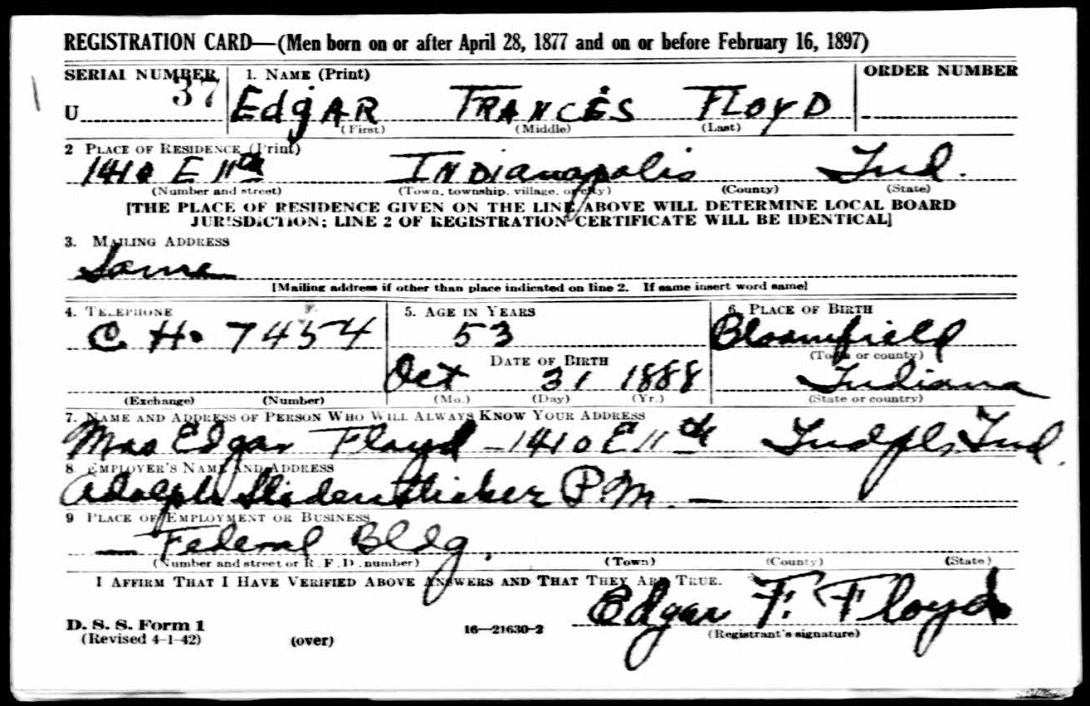 REGISTRATION CARD—(Men born on or after April 28, 1877 and on or before February 16, 1897)
SERIAL NUMBER 1. NAME (Print) ORDER NUMBER
U 37 EdgAR FRANCES FLOYD
(First) (Middle) (Last)
2 PLACE OF RESIDENCE (Print)
1410 E 11th INDianapolis Ind.
(Number and street) (Town, township, village, or city) (County) (State)
[THE PLACE OF RESIDENCE GIVEN ON THE LINE ABOVE WILL DETERMINE LOCAL BOARD
JURISDICTION; LINE 2 OF REGISTRATION CERTIFICATE WILL BE IDENTICAL]
3. MAILING ADDRESS
Same
[Mailing address if other than place indicated on line 2. If same insert word same]
4. TELEPHONE 5. AGE IN YEARS 6. PLACE OF BIRTH
CH. 7454 53 Bloomfield
(Town or county)
DATE OF BIRTH
Oct 31 1888 Indiana
(Exchange) (Number) (Mo.) (Day) (Yr.) (State or country)
7. NAME AND ADDRESS OF PERSON WHO WILL ALWAYS KNOW YOUR ADDRESS
Mrs Edgar Floyd - 1410 E 11th Indpls, Ind.
8 EMPLOYER'S NAME AND ADDRESS
Adolph P.M. —
9 PLACE OF EMPLOYMENT OR BUSINESS
— Federal Bldg.
(Number and street or R. F. D. number) (Town) (County) (State)
I AFFIRM THAT I HAVE VERIFIED ABOVE ANSWERS AND THAT THEY ARE TRUE.
Edgar F. Floyd
D. S. S. Form 1
(Revised 4-1-42) (over) 16—21630-2 (Registrant's signature)